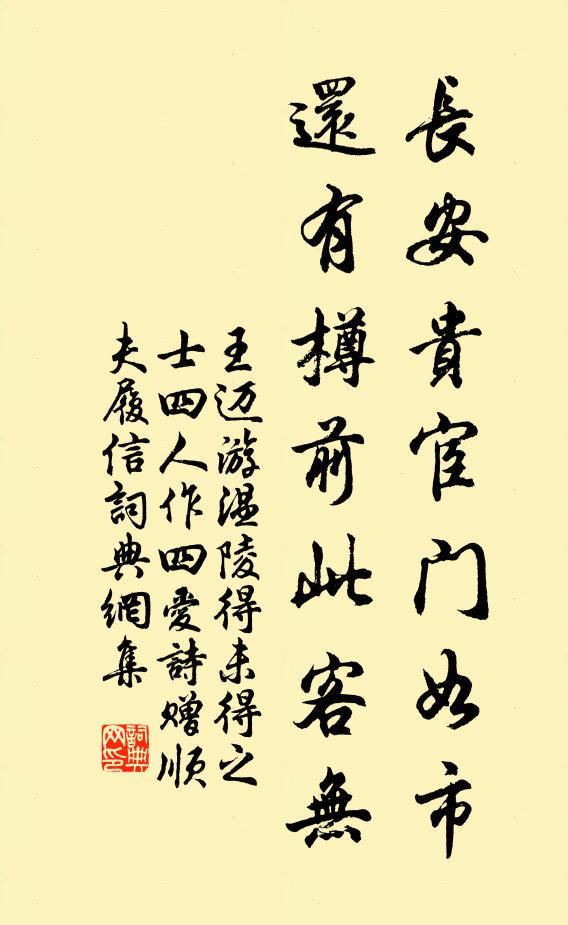 長安貴官門如市
還有樽前此客無
王迈游温陵得未得之
士四人作四愛詩贈順
夫履信詞典網集
詞典
网印